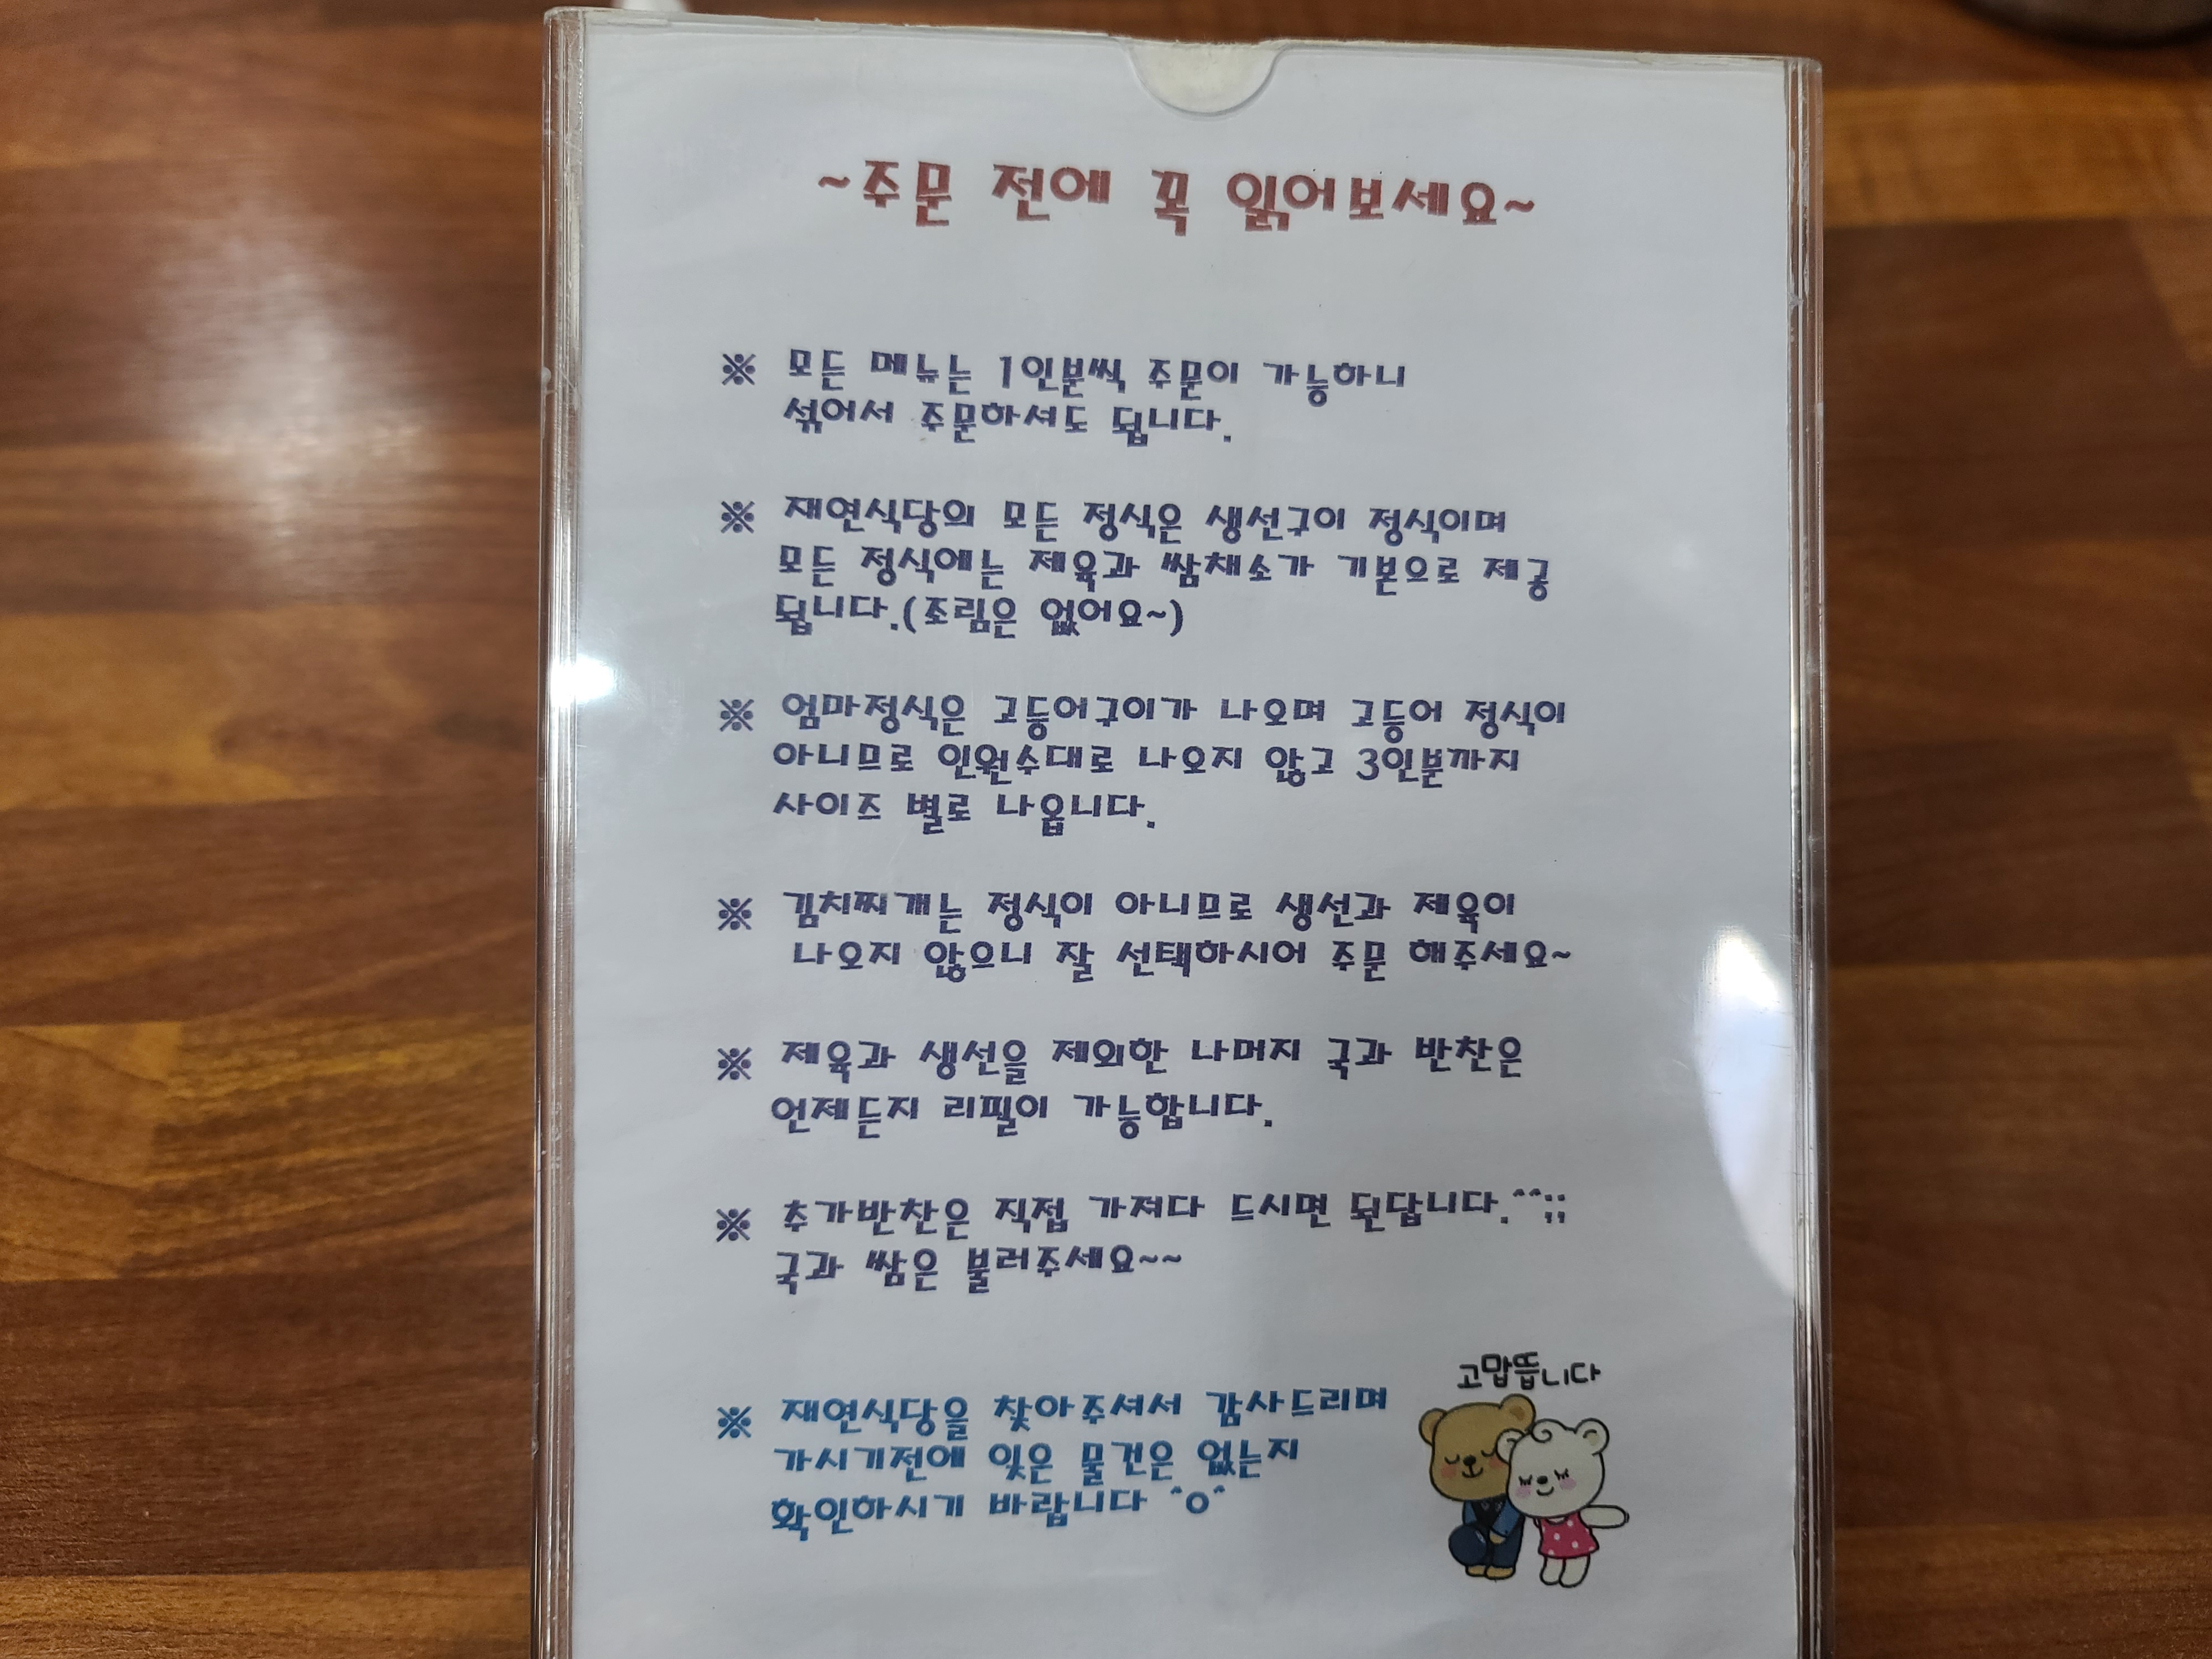 ~주문 전에 꼭 읽어보세요~
※ 모든 메뉴는 1인분씩 주문이 가능하니
섞어서 주문하셔도 됩니다.
※ 재연식당의 모든 정식은 생선구이 정식이며
모든 정식에는 제육과 쌈채소가 기본으로 제공
됩니다.(조림은 없어요~)
※ 엄마정식은 고등어구이가 나오며 고등어 정식이
아니므로 인원수대로 나오지 않고 3인분까지
사이즈 별로 나옵니다.
※ 김치찌개는 정식이 아니므로 생선과 제육이
나오지 않으니 잘 선택하시어 주문 해주세요~
※ 제육과 생선을 제외한 나머지 국과 반찬은
언제든지 리필이 가능합니다.
※ 추가반찬은 직접 가져다 드시면 된답니다.^^;;
국과 쌈은 불러주세요~~
고맙뜹니다
※ 재연식당을 찾아주셔서 감사드리며
가시기전에 잊은 물건은 없는지
확인하시기 바랍니다 ^o^